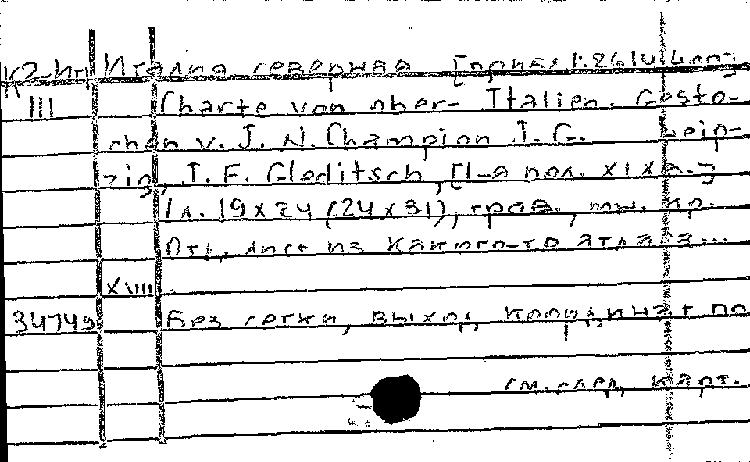 К2-Ит Италия северная
III Charte von ober- Italien. Gesto-
chen v. J. N. Champion J. G. Leip-
zig, J. F. Gleditsch, [1-я пол. XIX в.]
1 л. 19 x 24 (24 x 31), грав.,
Отд. лист из какого-то атласа...
XVIII
34749 Без сетки, выход. координат по
см. след. карт.